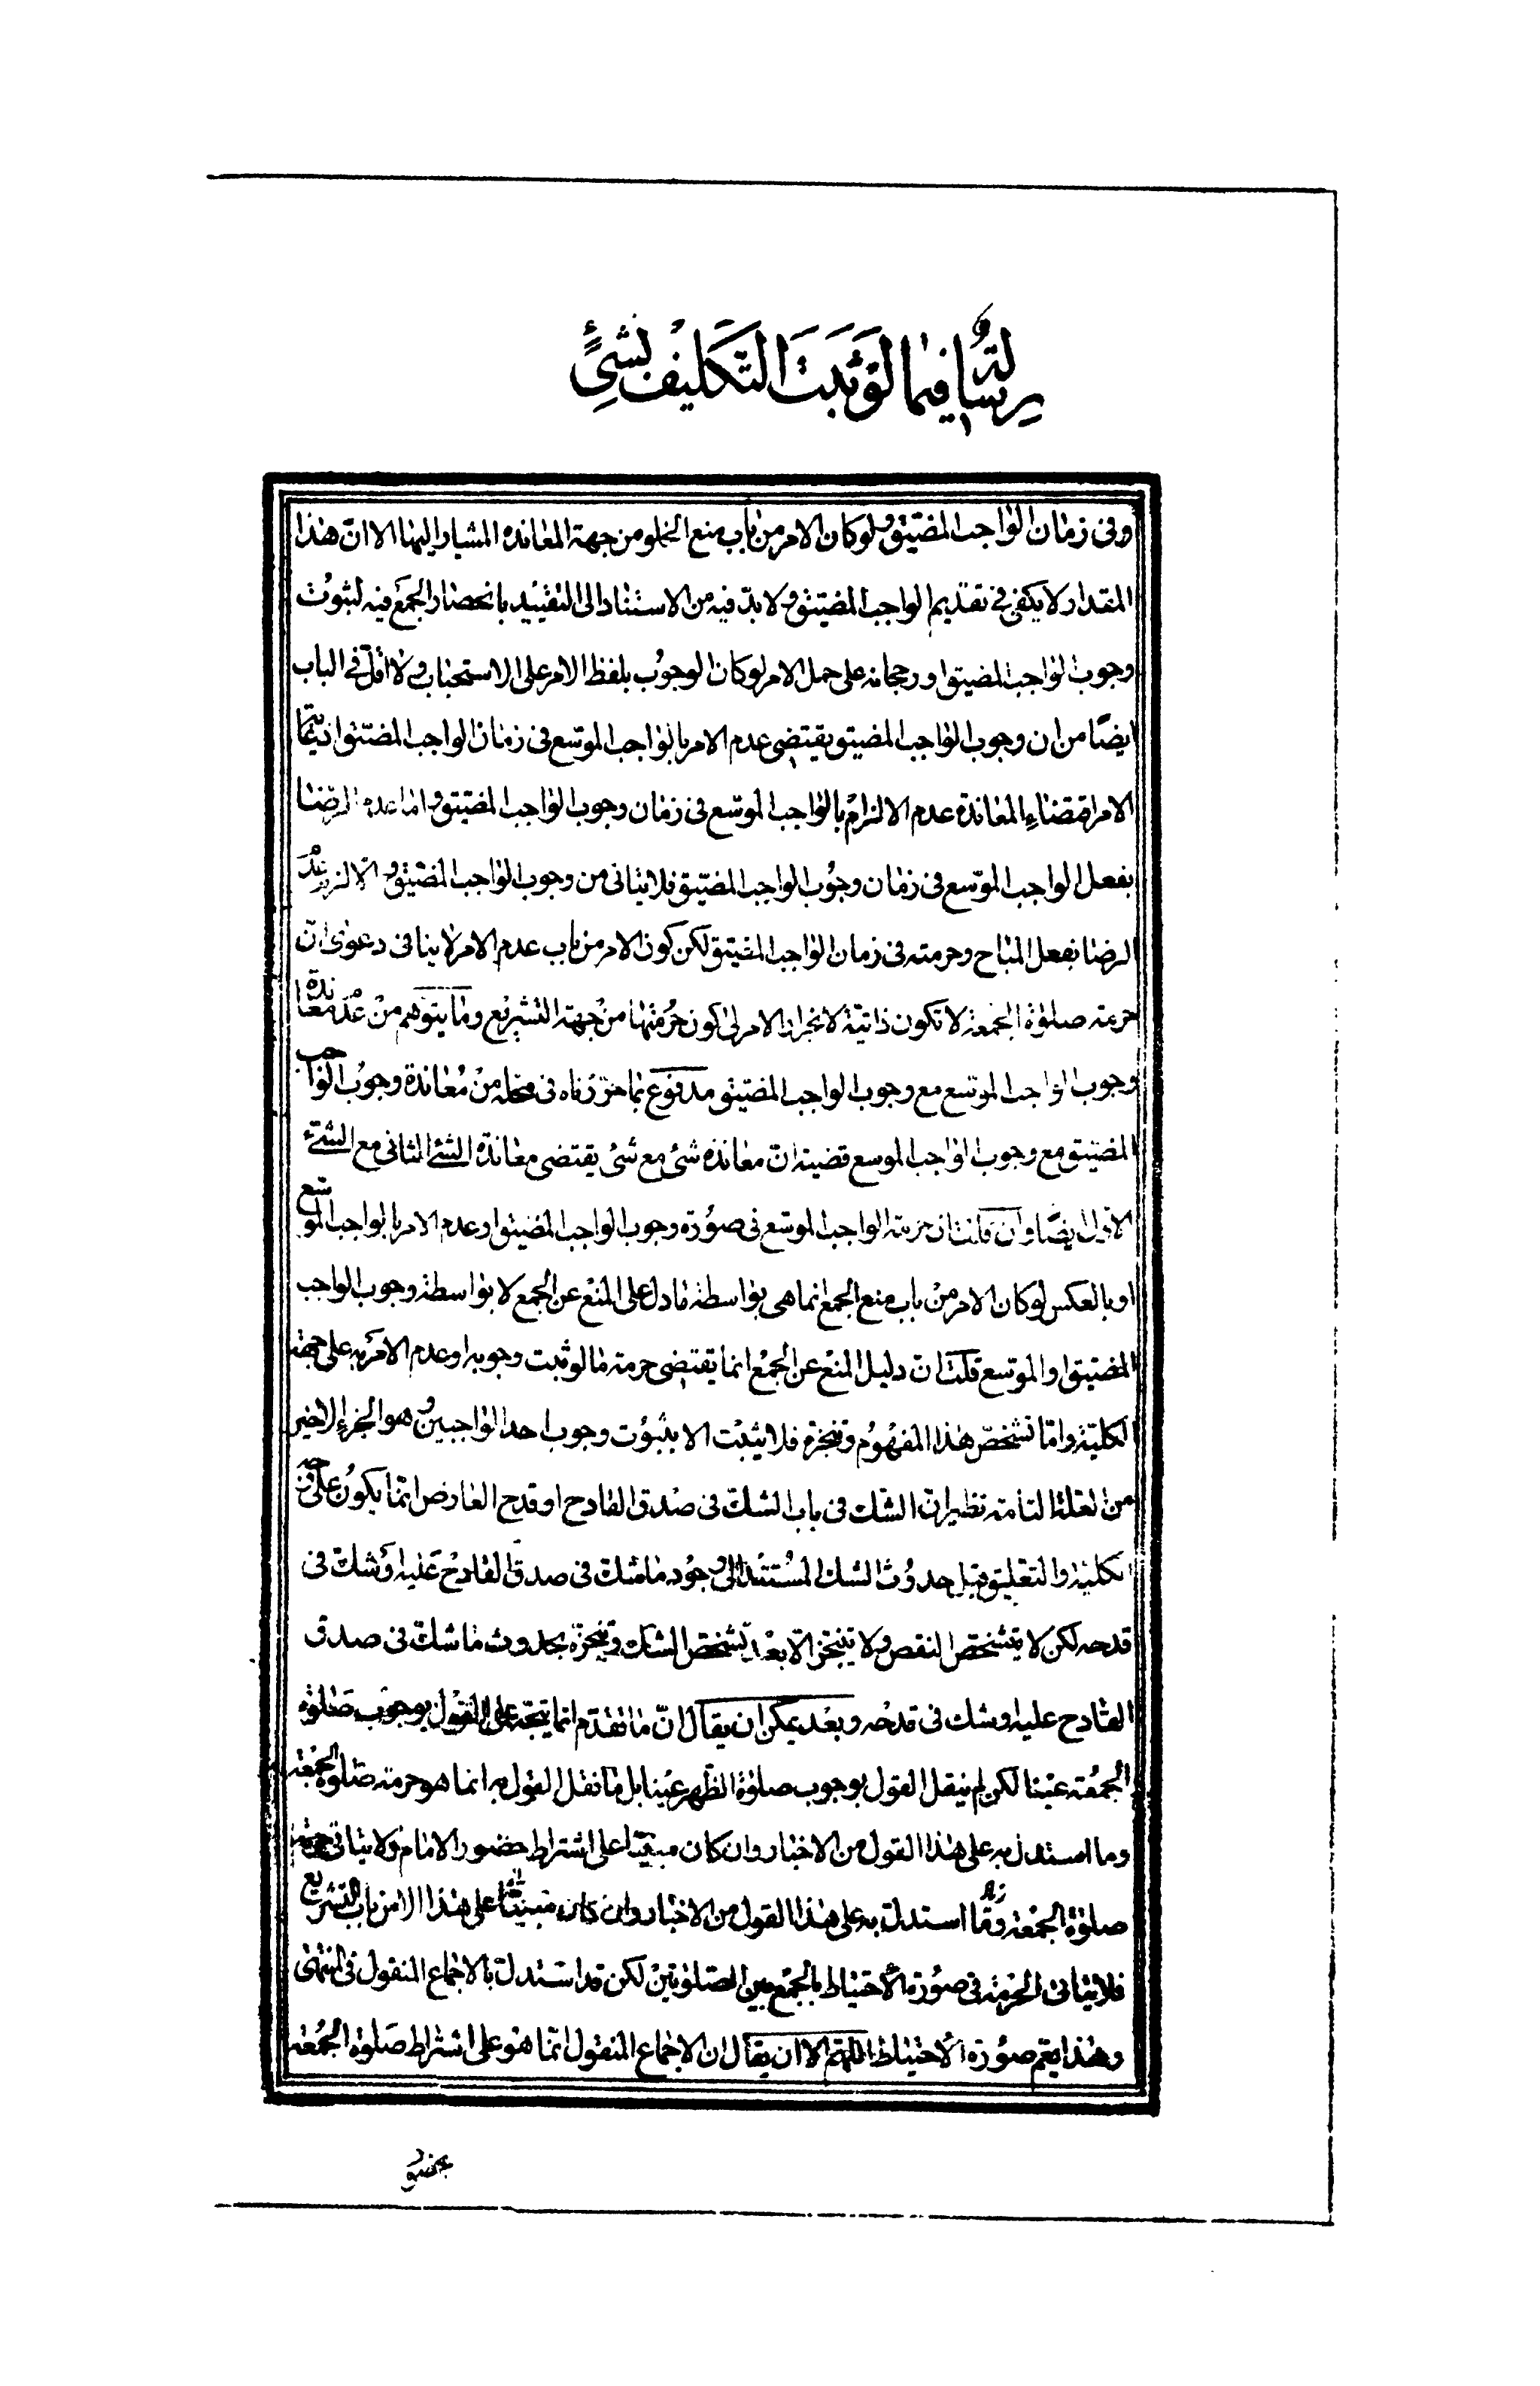 رسالة فيما لو ثبت التكليف بشئ
وفى زمان الواجب المضيّق ولو كان الامر من باب منع الخلو من جهة المعانده المشار اليها الا انّ هذا
المقدار لا يكفى فى تقديم الواجب المضيّق ولا بدّ فيه من الاستناد الى التقييد بانحصار الجمع فيه لثبوت
وجوب الواجب المضيق ورجحانه على حمل الامر لو كان الوجوب بلفظ الامر على الاستحباب ولا اقلّ فى الباب
ايضًا من ان وجوب الواجب المضيق يقتضى عدم الامر بالواجب الموسّع فى زمان الواجب المضيق
الامر اقتضاء المعاندة عدم الالزام بالواجب الموسّع فى زمان وجوب الواجب المضيّق واما عدم الرّضا
بفعل الواجب الموسّع فى زمان وجوب الواجب المضيّق فلا يتاتى من وجوب الواجب المضيّق والا لزم عدم
الرضا بفعل المباح وحرمته فى زمان الواجب المضيّق لكن كون الامر من باب عدم الامر لا ينافى دعوى انّ
حرمته صلوة الجمعة لا تكون ذاتيّة لانجرار الامر الى كون حرمتها من جهة التشريع وما يتوّهم من عدم معاندة
وجوب الواجب الموسّع مع وجوب الواجب المضيّق مدفوع بما حرّرناه فى محله من معاندة وجوب الواجب
المضيّق مع وجوب الواجب الموسع قضية انّ معاندة شئ مع شئ يقتضى معاندة الشئ الثانى مع الشئ
الاوّل ايضًا وان قلت ان حرمة الواجب الموسّع فى صورة وجوب الواجب المضيّق او عدم الامر بالواجب الموسّع
او بالعكس لو كان الامر من باب منع الجمع انما هى بواسطة ما دل على المنع عن الجمع لا بواسطة وجوب الواجب
المضيّق او الموسّع قلت انّ دليل المنع عن الجمع انما يقتضى حرمة ما لو ثبت وجوبه او عدم الامر به على جهة
الكليّة وامّا تشخّص هذا المفهوم وتنجزه فلا يثبت الا بثبوت وجوب احد الواجبين وهو الجزء الاخير
من العلة التامّة نظير انّ الشّك فى باب الشكّ فى صدق القادح او قدح العارض انّما يكون على وجه
الكلية والتعليق قبل حدوث الشك المستند الى وجود ما شكّ فى صدق القادح عليه او شكّ فى
قدحه لكن لا يتشخّص النقص ولا يتنجّز الّا بعد تشخّص الشكّ وتنجّزه بحدوث ما شكّ فى صدق
القادح عليه او شك فى قدحه وبعد يمكن ان يقال انّ ما تقدّم انما يتجّه على القول بوجوب صلوة
الجمعة عينا لكن لم ينقل القول بوجوب صلوة الظّهر عينا بل ما نقل القول به انما هو حرمة صلوة الجمعة
وما استدل به على هذا القول من الاخبار وان كان مبنيّا على اشتراط حضور الامام ولا يتاتى حرمة
صلوة الجمعة وما استدلّ به على هذا القول من الاخبار وان كان مبنيّا على هذا الامر من باب التشريع
فلا يتاتى الحرمة فى صورة الاحتياط بالجمع بين الصّلوتين لكن قد استدلّ بالاجماع المنقول فى المنتهى
وهذا يعم صورة الاحتياط اللّهم الا ان يقال ان الاجماع المنقول انّما هو على اشتراط صلوة الجمعة
بحضور